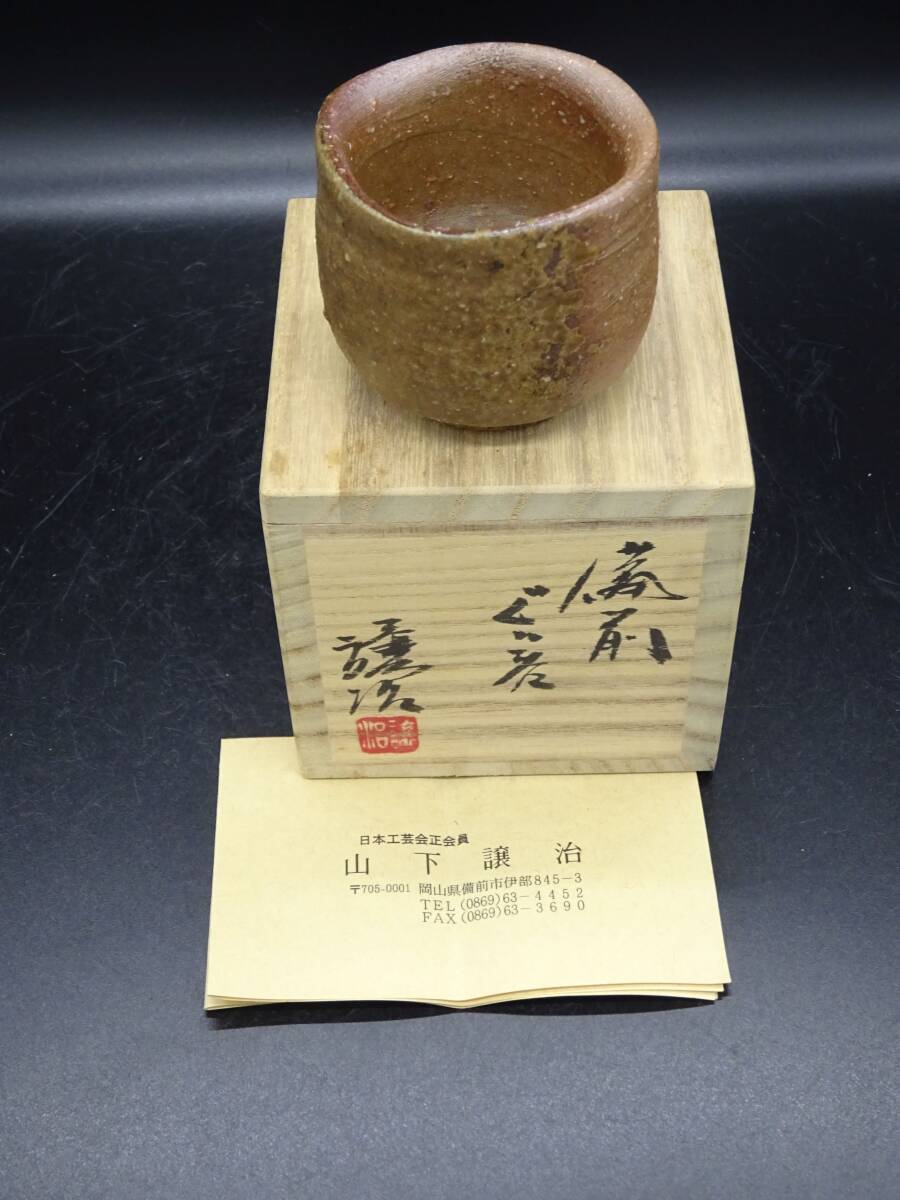 備前
ぐい呑
譲治
譲治
日本工芸会正会員
山下譲治
〒705-0001 岡山県備前市伊部845-3
TEL (0869)63-4452
FAX (0869)63-3690